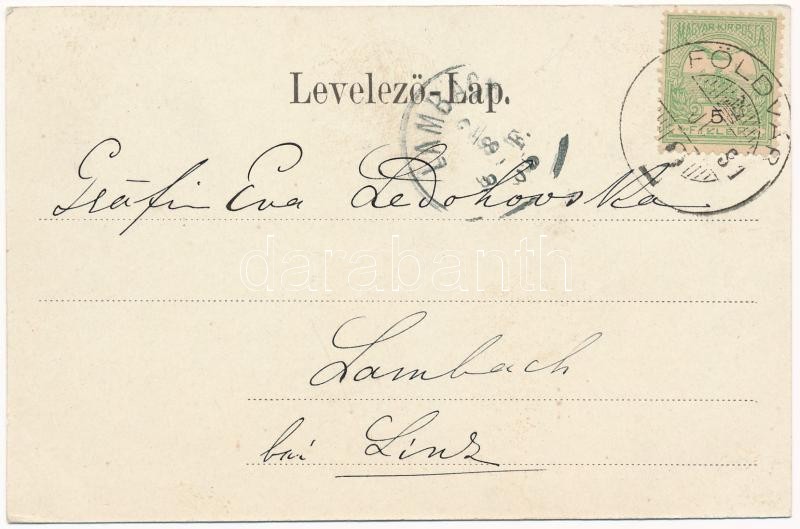 MAGYAR KIR. POSTA
5
FILLÉR
FÖLDVÁR
Levelező-Lap.
LAMBACH
Gräfin Eva Ledohovska
darabanth
Lambach
bai Linz